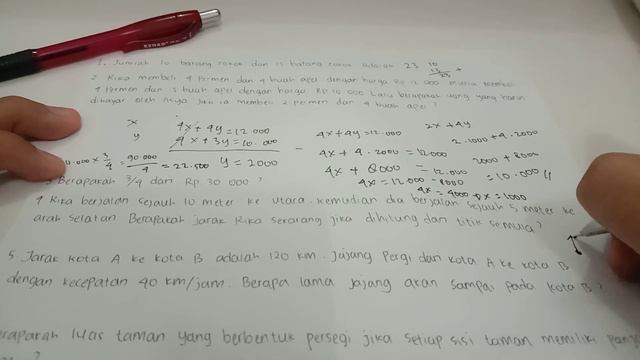 1. Jumlah 10 batang rokok dan 13 batang rokok adalah 23
10
13 +
23
2. Rika membeli 4 Permen dan 4 buah apel dengan harga Rp 12 000
4 Permen dan 3 buah apel dengan harga Rp 10 000 Lalu berapakah uang yang harus
dibayar oleh jika ia membeli 2 permen dan 4 buah apel ?
x
y
4x + 4y = 12.000
4x + 3y = 10.000 -
y = 2000
4x + 4y = 12.000
4x + 4.2000 = 12000
4x + 8000 = 12.000
4x = 12.000 - 8000
4x = 4000 x = 1000
2x + 4y
2.1000 + 4.2000
2000 + 8000
= 10.000 //
0.000 x 3/4 = 90.000/4 = 22.500
3 Berapakah 3/4 dari Rp 30 000 ?
4 Rika berjalan sejauh 10 meter ke utara. kemudian dia berjalan sejauh 5 meter ke
arah selatan Berapakah jarak Rika sekarang jika dihitung dari titik semula ?
5 Jarak kota A ke kota B adalah 120 km. Jajang Pergi dari kota A ke kota B
dengan kecepatan 40 km/jam. Berapa lama jajang akan sampai pada kota B ?
erapakah luas taman yang berbentuk persegi jika setiap sisi taman memiliki panj
?